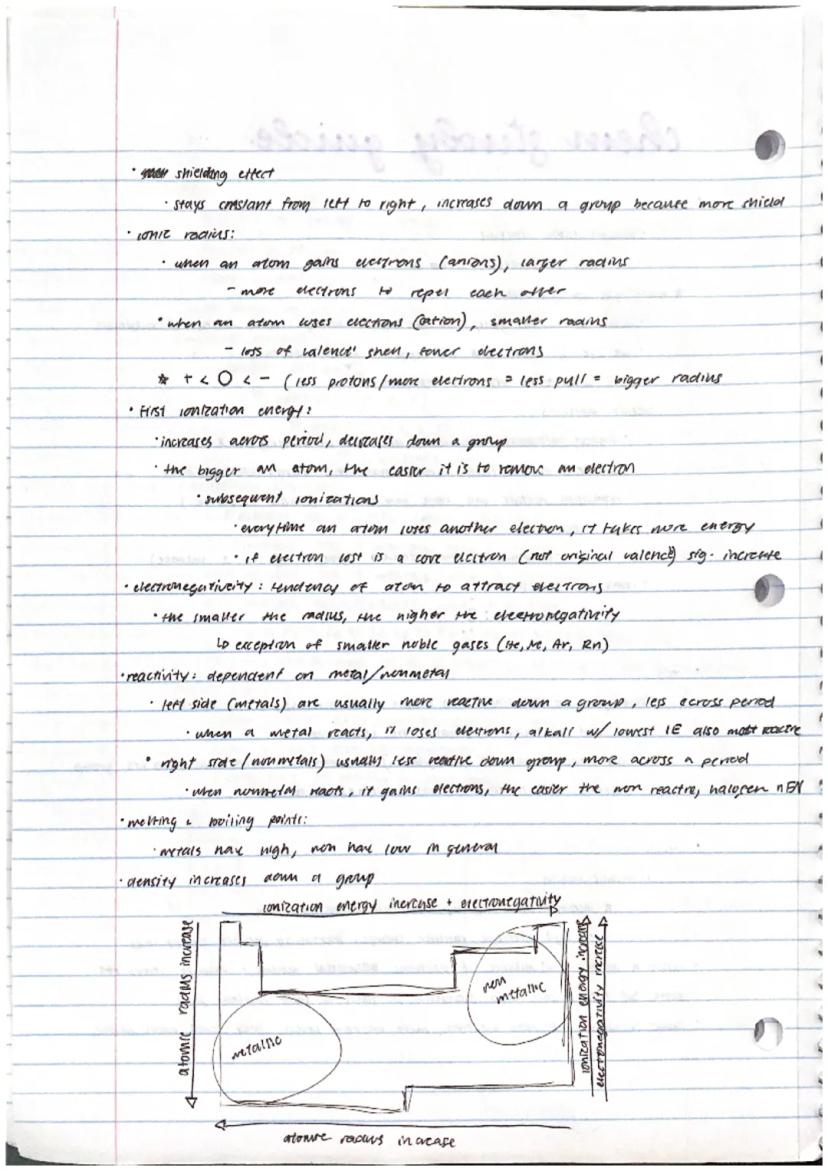 · shielding effect
· stays constant from left to right, increases down a group because more shield
· ionic radius:
· when an atom gains electrons (anions), larger radius
- more electrons to repel each other
· when an atom loses electrons (cation), smaller radius
- loss of valence shell, fewer electrons
☆ + < O < - (less protons/more electrons = less pull = bigger radius
· First ionization energy:
· increases across period, decreases down a group
· the bigger an atom, the easier it is to remove an electron
· subsequent ionizations
· everytime an atom loses another electron, it takes more energy
· if electron lost is a core electron (not original valence) sig. increase
· electronegativeity: tendency of atom to attract electrons
· the smaller the radius, the higher the electronegativity
↳ exception of smaller noble gases (He, Ne, Ar, Rn)
· reactivity: dependent on metal/nonmetal
· left side (metals) are usually more reactive down a group, less across period
· when a metal reacts, it loses electrons, alkali w/ lowest IE also most reactive
· right side (nonmetals) usually less reactive down group, more across a period
· when nonmetal reacts, it gains electrons, the easier the more reactive, halogen
· melting & boiling points:
· metals have high, non have low in general
· density increases down a group
ionization energy increase + electronegativity
atomic radius increase
metallic
non metallic
ionization energy increase
electronegativity increase
atomic radius increase
chem study guide